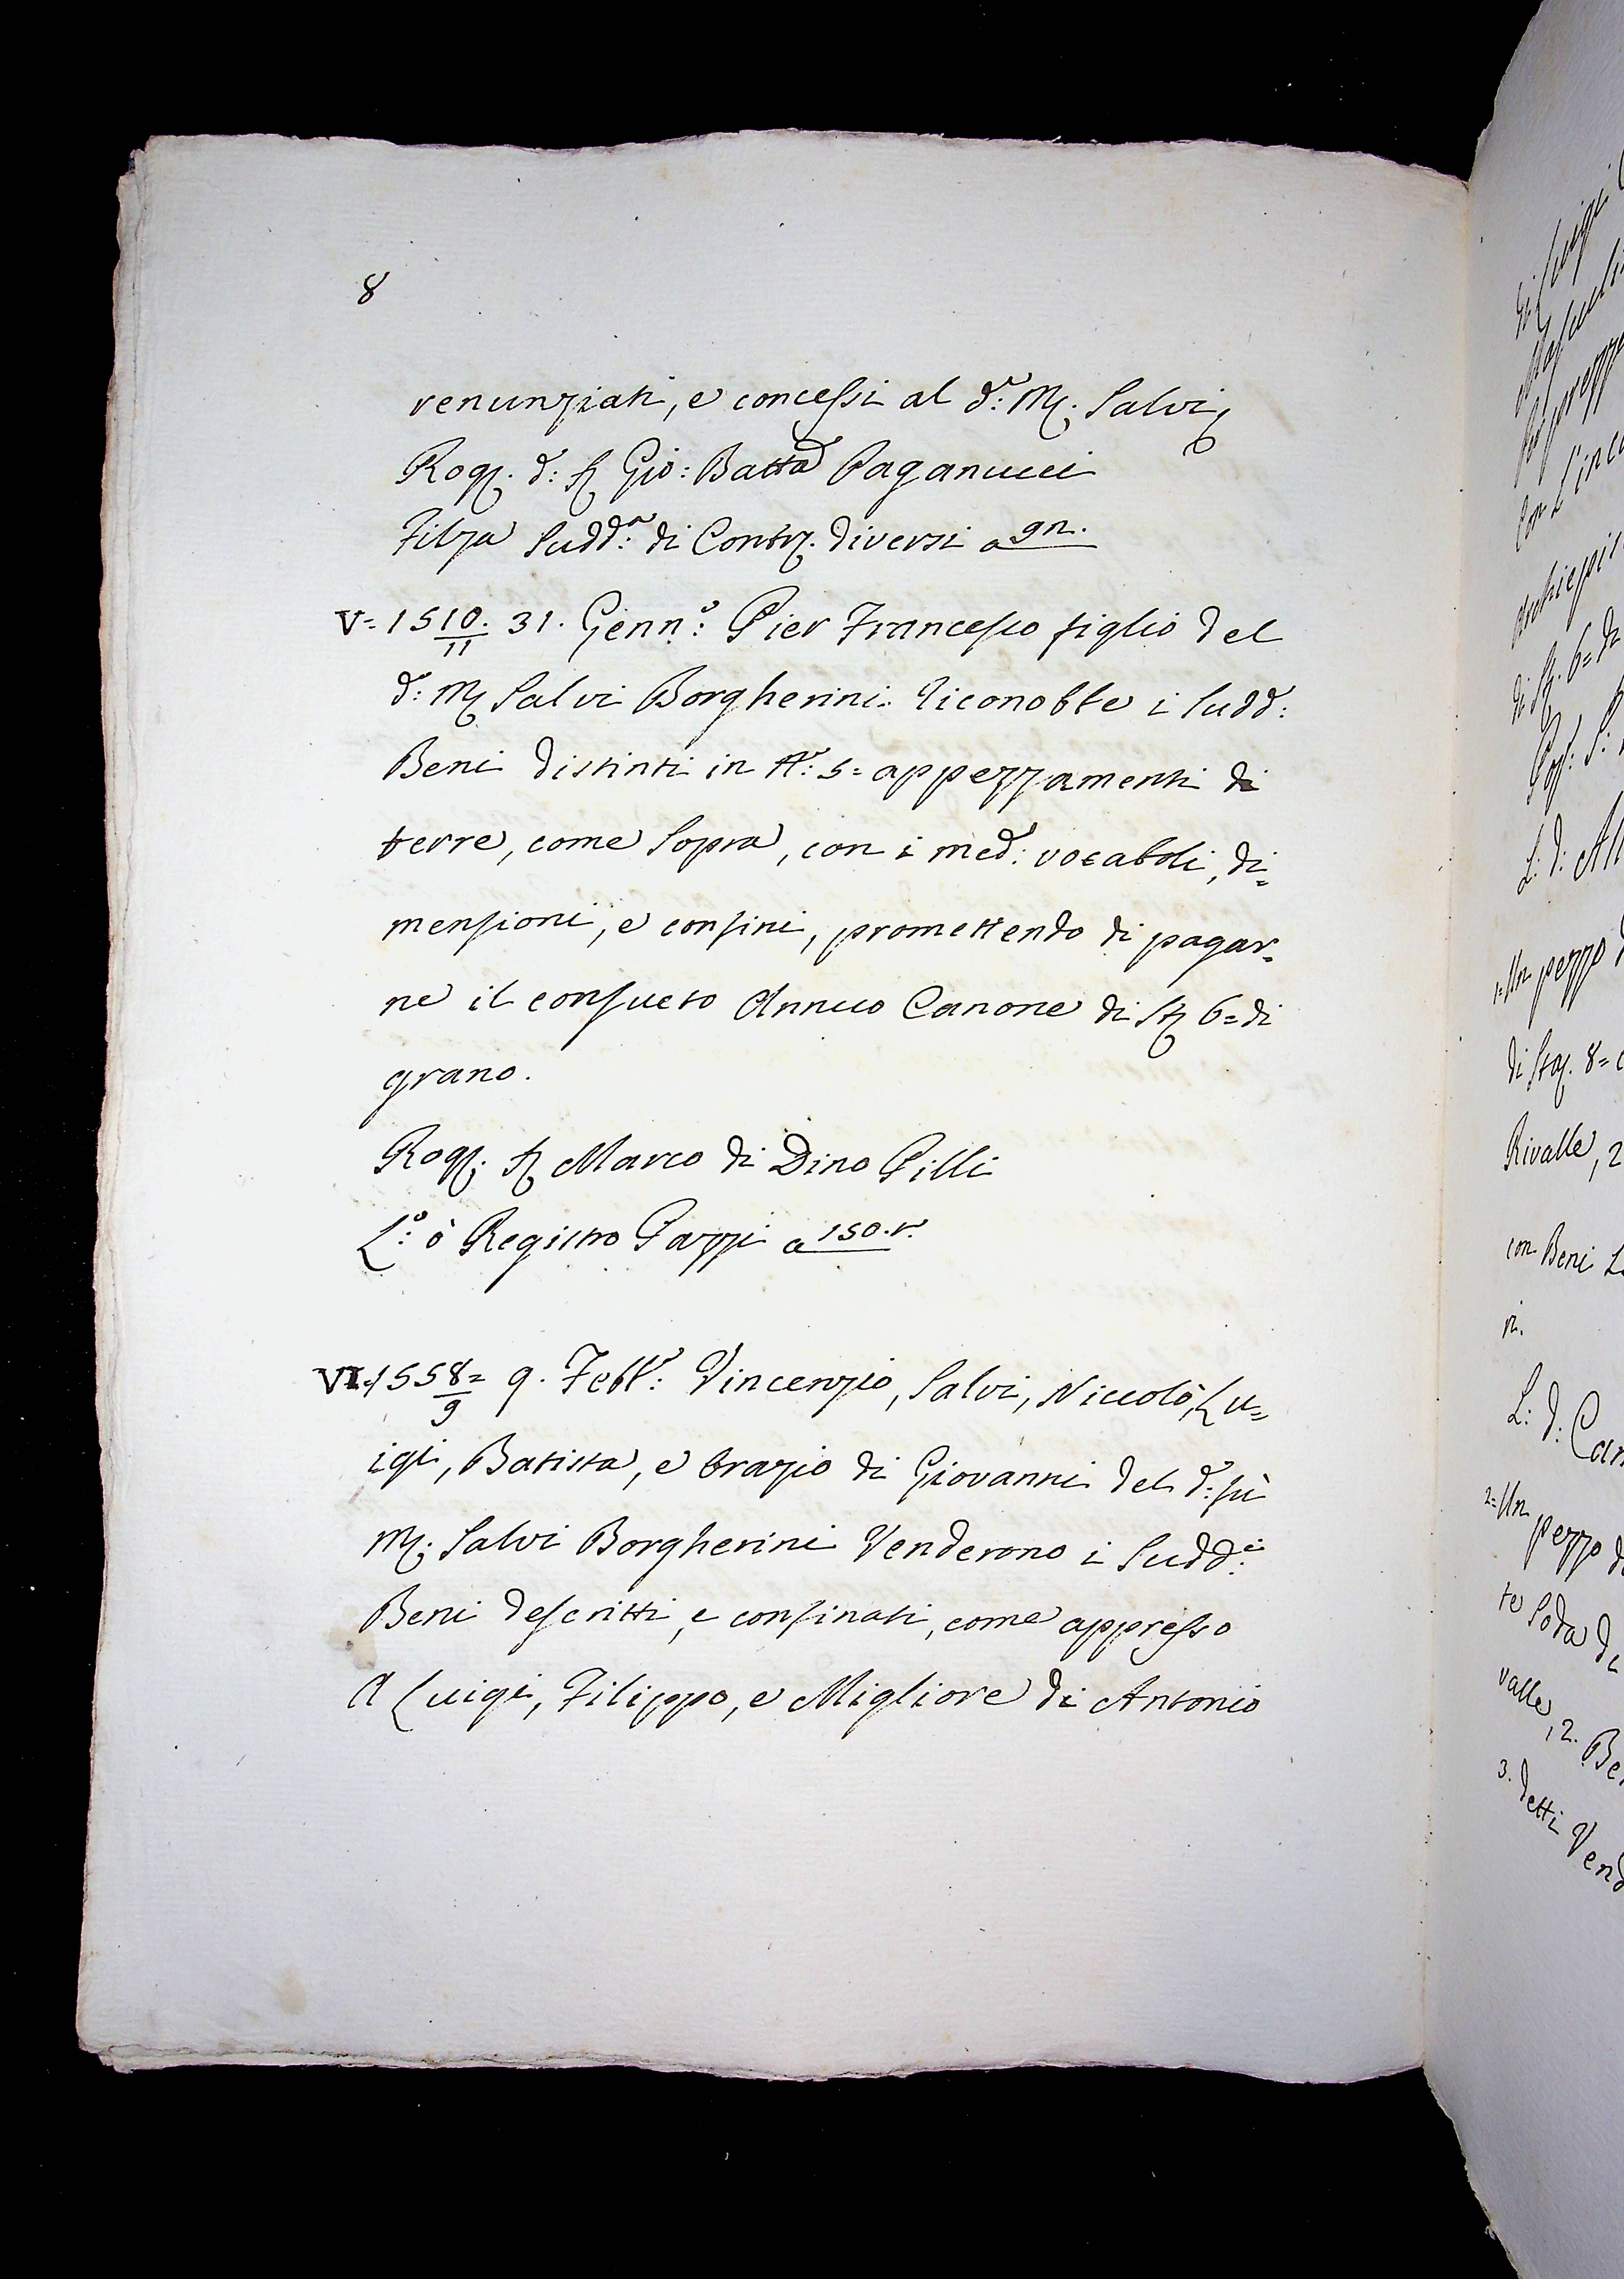 8
renunziati, e concessi al d.º M. Salvi,
Rog. d: S. Gio: Batta Paganucci
Filza Sudd:ª di Contr. diversi a gn.
V= 1510./11 31. Genn:º Pier Francesco figlio del
d: M. Salvi Borgherini riconobbe i Sudd:
Beni distinti in Nº: 5= appezzamenti di
terre, come Sopra, con i med: vocaboli, di=
mensioni, e confini, promettendo di pagar=
ne il consueto Annuo Canone di St. 6= di
grano.
Rog. S. Marco di Dino Pilli
L:º ò Registro Pazzi a 150.r.
VI=1558=/9 9. Febb:º Vincenzio, Salvi, Niccolò, Lu=
igi, Batista, e Orazio di Giovanni del d: fù
M. Salvi Borgherini Venderono i Sudd:i
Beni descritti, e confinati, come appresso
A Luigi, Filippo, e Migliore di Antonio
di Luigi
con L'inca
di St. 6= di
L: d: Al
1= Un pezzo d
di Sta. 8= c
Rivalle, 2
con Beni L
ri.
L: d: Can
2= Un pezzo d
te Soda di
valle, 2. Be
3. detti Vend